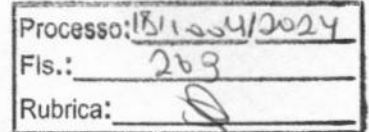 Processo: 18/1.004/2024
Fls.:
Rubrica: